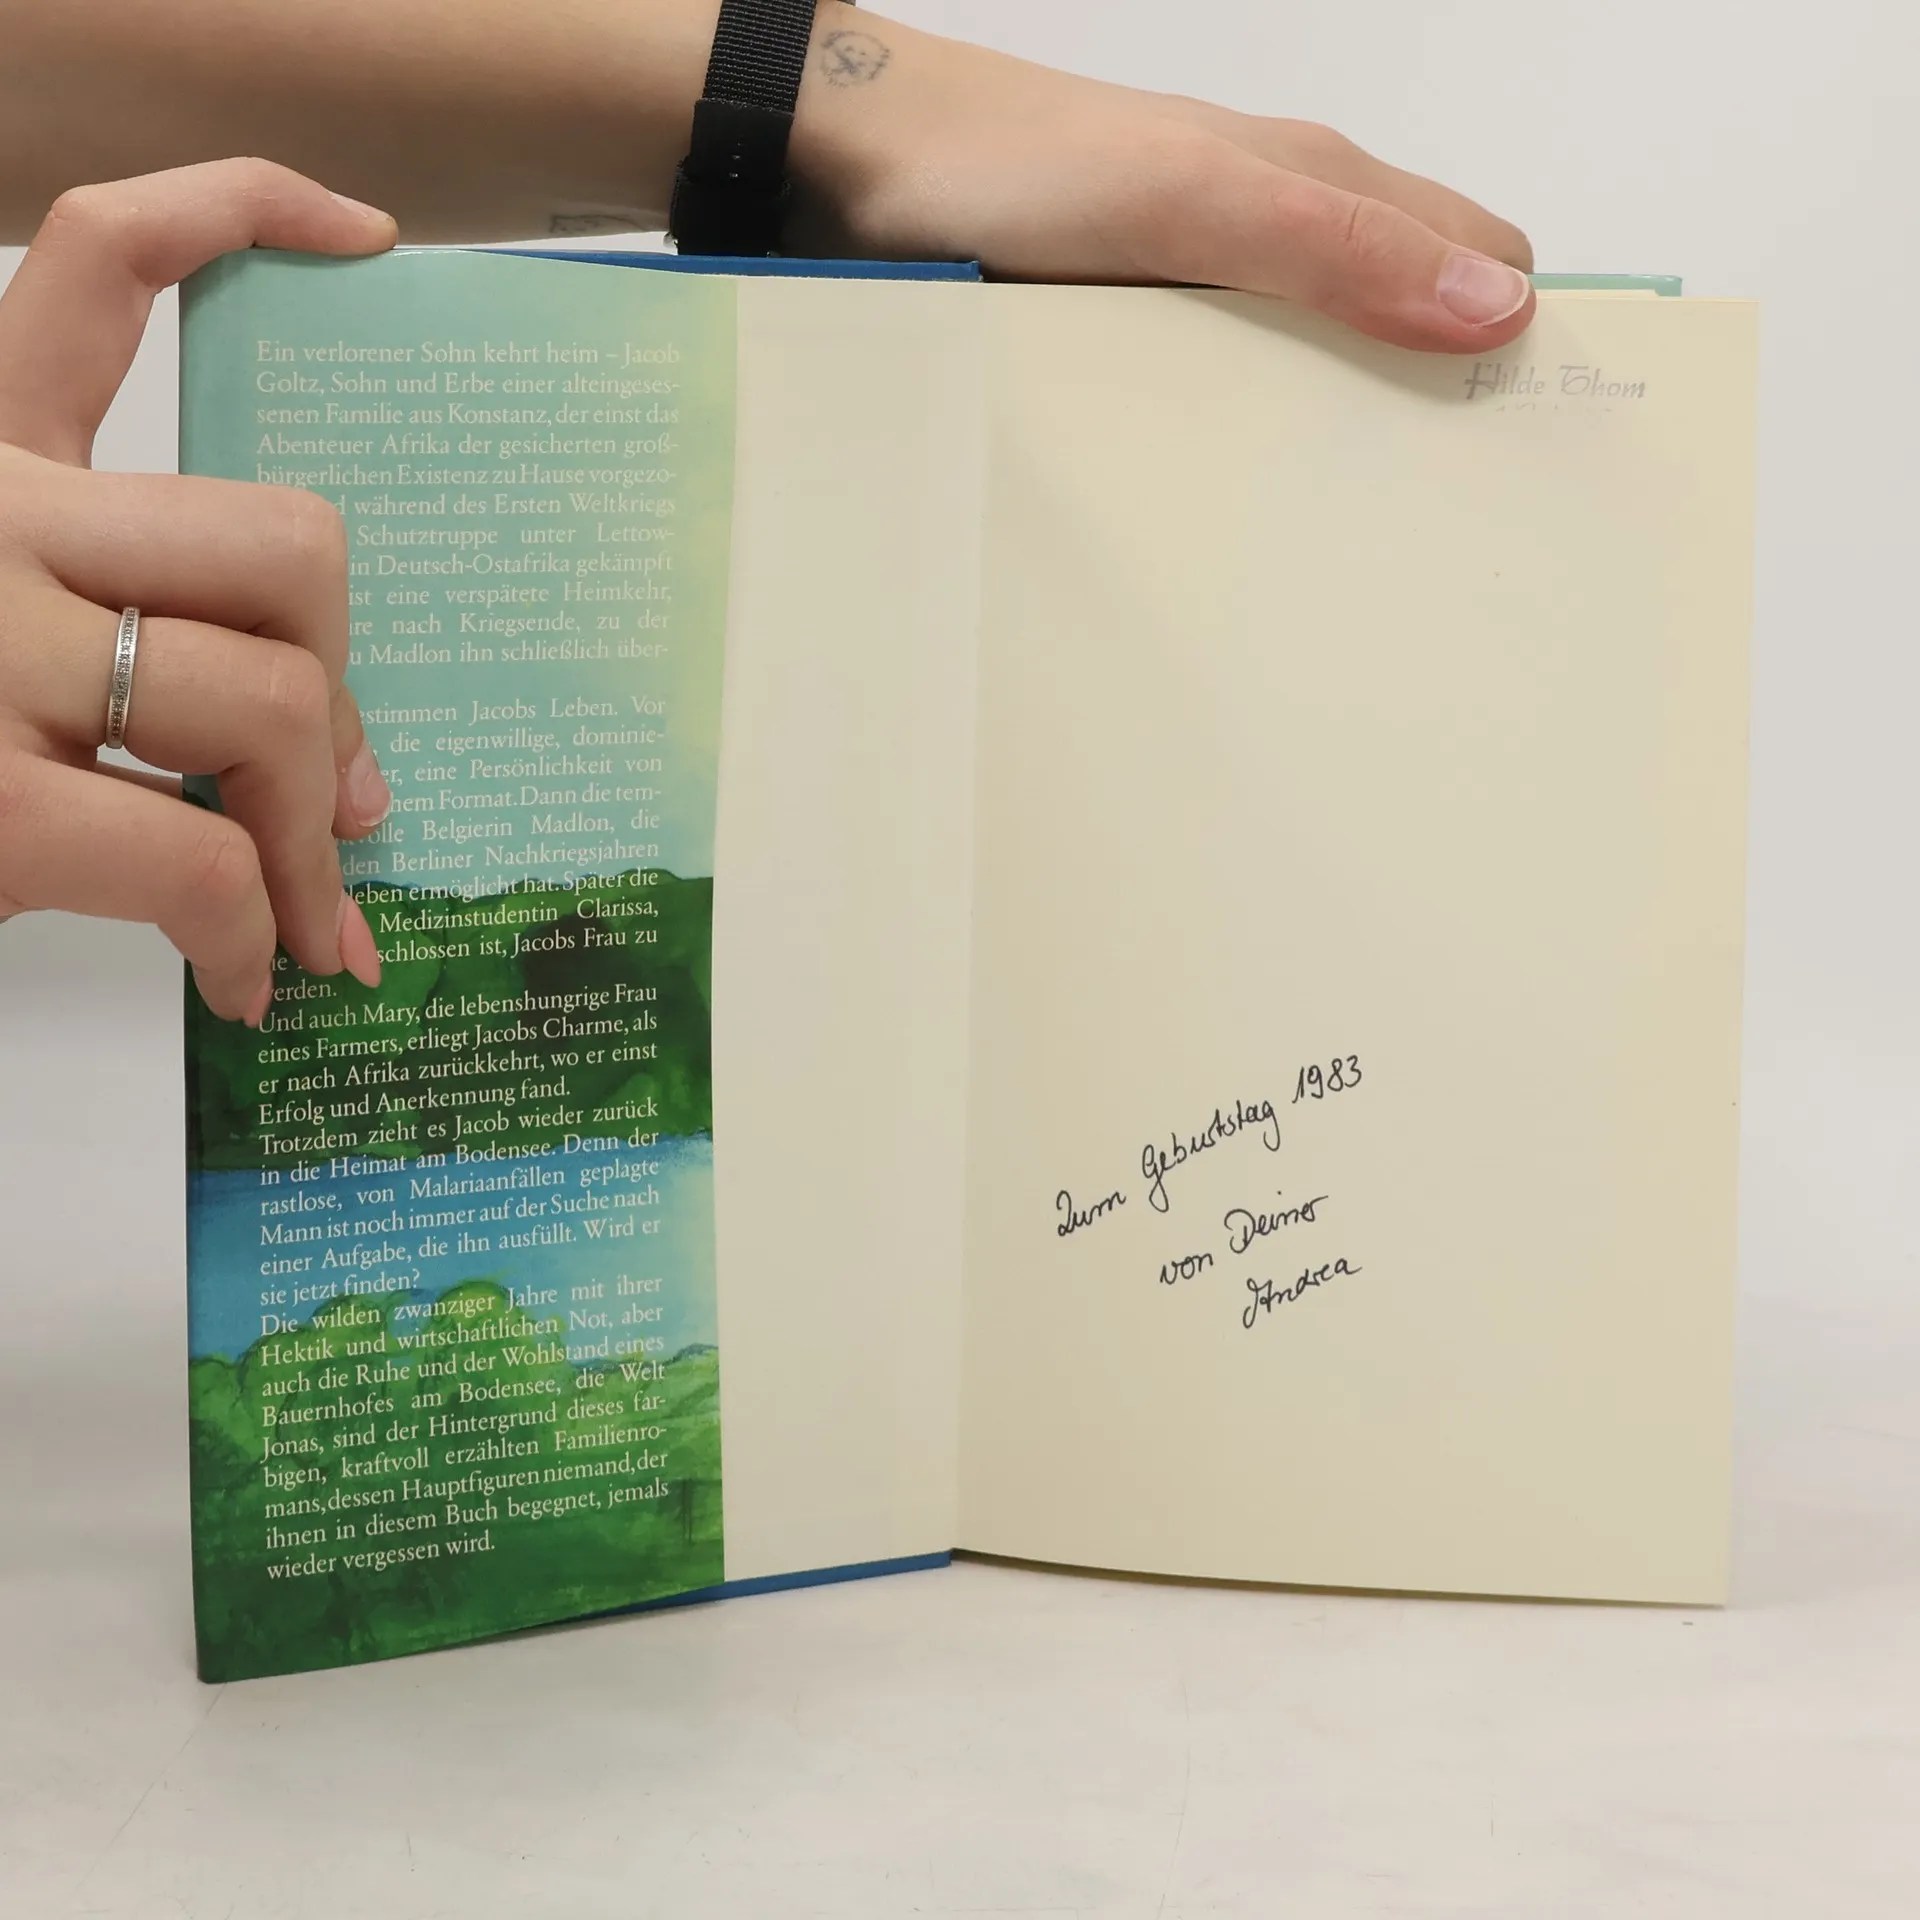 Ein verlorener Sohn kehrt heim – Jacob
Goltz, Sohn und Erbe einer alteingeses-
senen Familie aus Konstanz, der einst das
Abenteuer Afrika der gesicherten groß-
bürgerlichen Existenz zu Hause vorgezo-
während des Ersten Weltkriegs
Schutztruppe unter Lettow-
in Deutsch-Ostafrika gekämpft
ist eine verspätete Heimkehr,
nach Kriegsende, zu der
Madlon ihn schließlich über-
Jacobs Leben. Vor
die eigenwillige, dominie-
eine Persönlichkeit von
Format. Dann die tem-
Belgierin Madlon, die
den Berliner Nachkriegsjahren
ermöglicht hat. Später die
Medizinstudentin Clarissa,
ist, Jacobs Frau zu
Und auch Mary, die lebenshungrige Frau
eines Farmers, erliegt Jacobs Charme, als
er nach Afrika zurückkehrt, wo er einst
Erfolg und Anerkennung fand.
Trotzdem zieht es Jacob wieder zurück
in die Heimat am Bodensee. Denn der
rastlose, von Malariaanfällen geplagte
Mann ist noch immer auf der Suche nach
einer Aufgabe, die ihn ausfüllt. Wird er
sie jetzt finden?
Die wilden zwanziger Jahre mit ihrer
Hektik und wirtschaftlichen Not, aber
auch die Ruhe und der Wohlstand eines
Bauernhofes am Bodensee, die Welt
Jonas, sind der Hintergrund dieses far-
bigen, kraftvoll erzählten Familienro-
mans, dessen Hauptfiguren niemand, der
ihnen in diesem Buch begegnet, jemals
wieder vergessen wird.
Hilde Thom
Zum Geburtstag 1983
von Deiner
Andrea